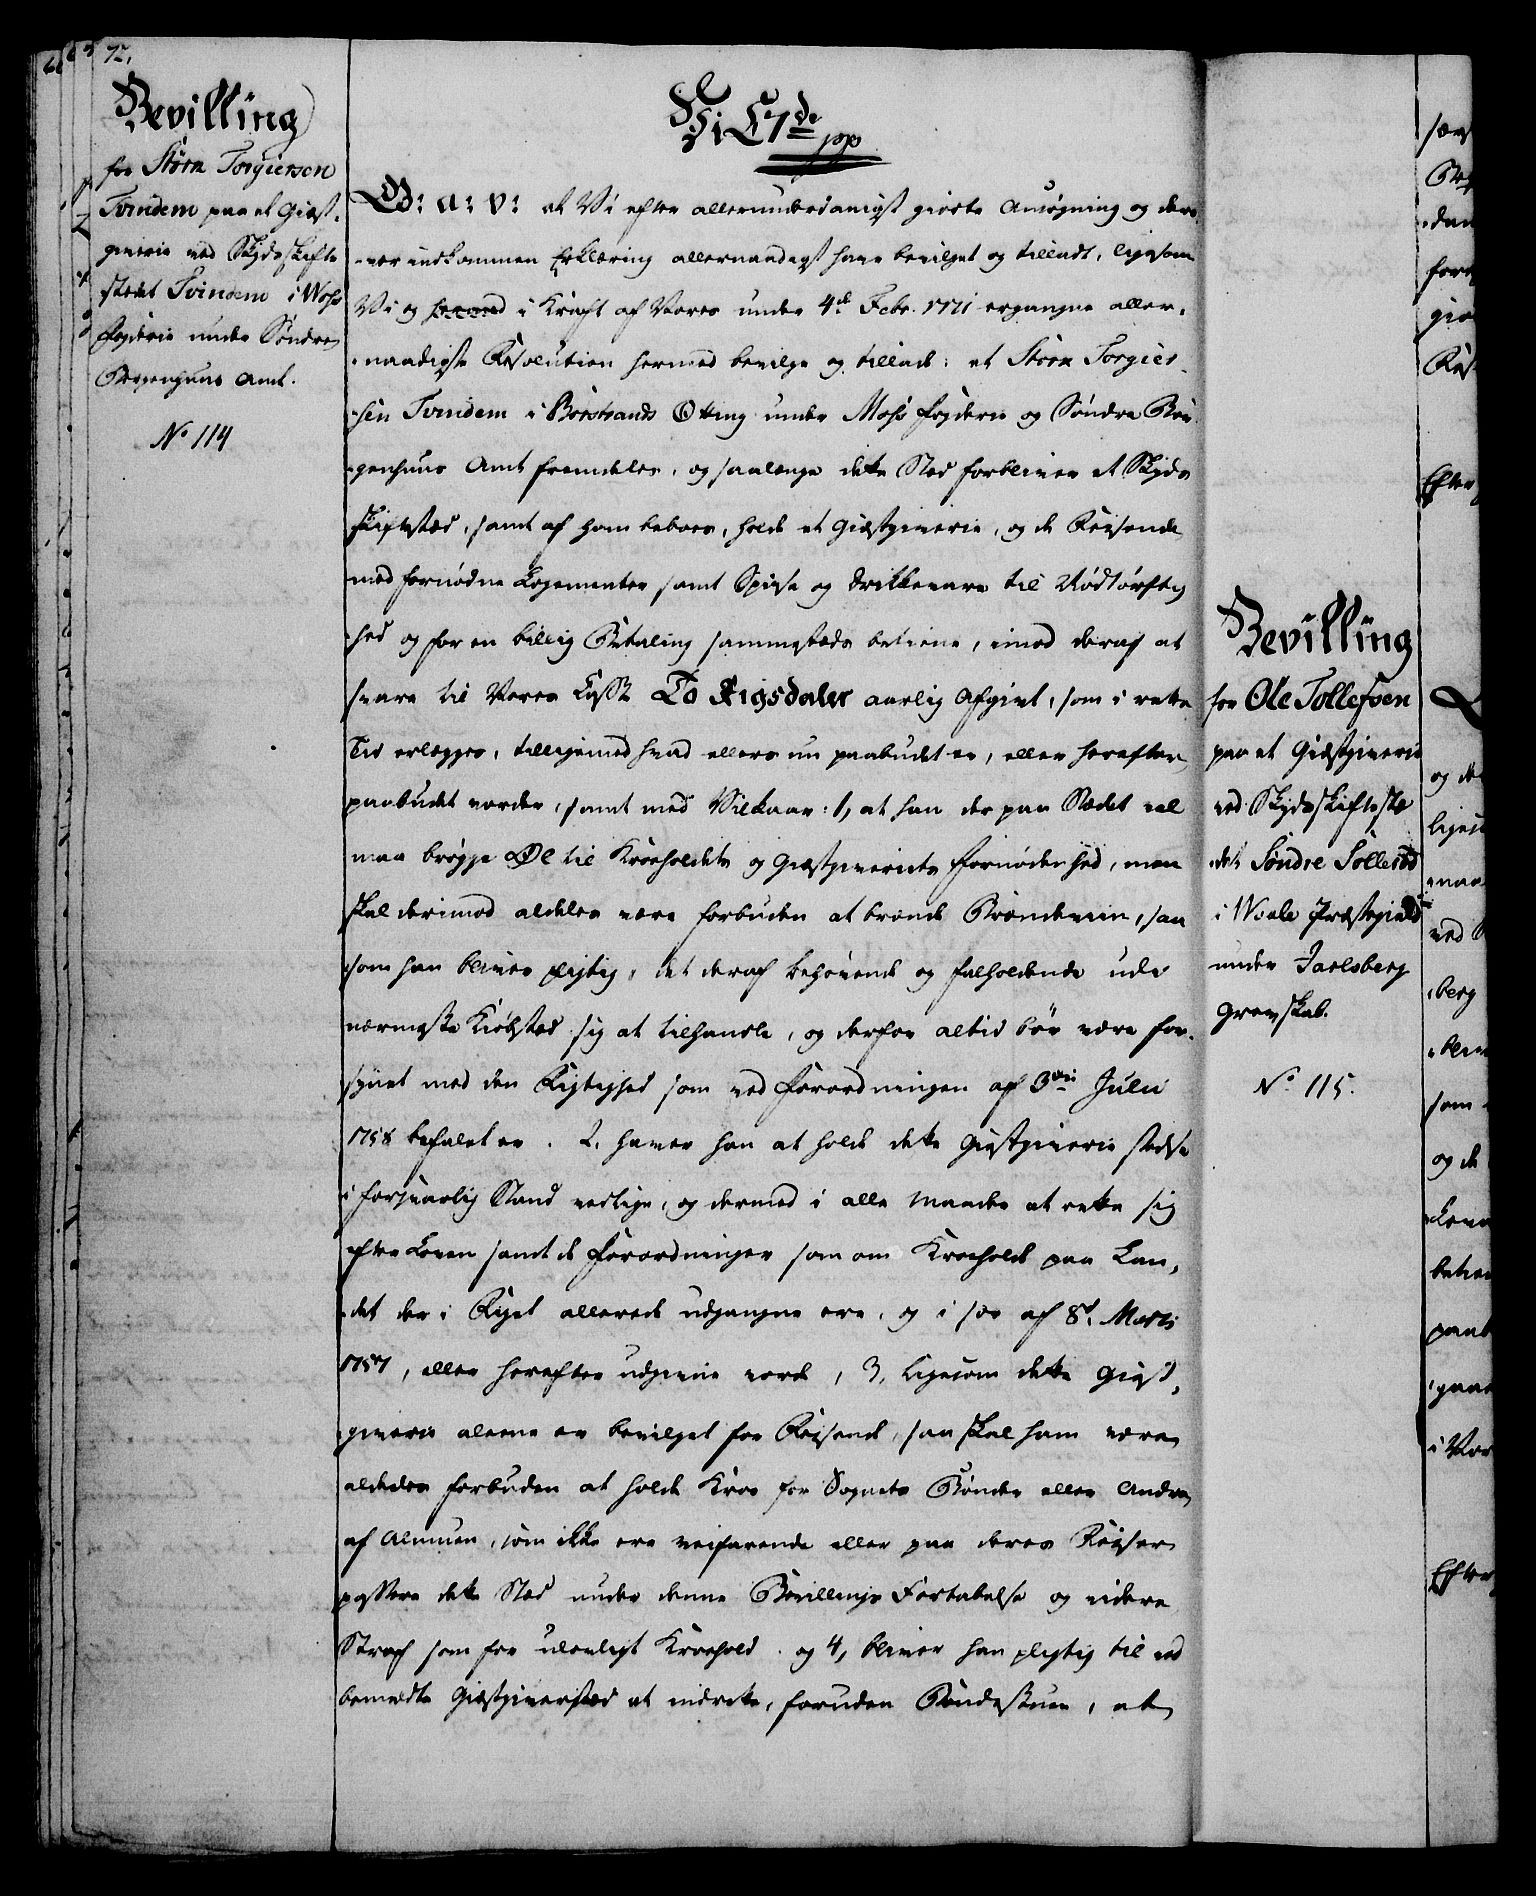 72,
Bevilling
for Storn Torgiersen
Tvindem paa et Giæst-
giverie ved Skydsskifte
stedet Tvindem i Mohs
Fogderie under Søndre
Bergenhuus Amt.
No 114
Vi C 7de pp
G: A: V: at Vi efter allerunderdanigst giorte Ansøgning og der-
over indkommen Erklæring allernaadigst have bevilget og tilladt, ligesom
Vi og hermed i Kraft af Vores under 4de Febr. 1771 ergangne aller-
naadigste Resolution hermed bevilge og tillade: at Storn Torgier-
sen Tvindem i Borstrands Otting under Mohs Fogderie og Søndre Ber-
genhuus Amt fremdeles, og saalænge dette Sted forbliver et Skyds
skiftested, samt af ham beboes, holde et Giæstgiverie, og de Reisende
med fornødne Logementer samt Spise og Drikkevare til Nødtørftig
hed og for en billig Betaling sammesteds betiene, imod deraf at
svare til Vores Casse To Rigsdaler aarlig Afgivt, som i rette
Tid erlægges, tilligemed hvad ellers nu paabudet er, eller herefter
paabudet vorder, samt med Vilkaar: 1, at han der paa Stedet vel
maa brygge Øl til Kroeholdets og Giæstgiveriets Fornødenhed, men
skal derimod aldeles være forbuden at brænde Brændeviin, saa
som han bliver pligtig, det deraf behøvende og falholdende udi
nærmeste Kiøbsted sig at tilhandle, og derfor altid bør være for-
synet med den Rigtighed som ved Forordningen af 3die Julii
1758 befalet er. 2, haver han at holde dette Giæstgiverie stedse
i forsvarlig Stand vedlige, og dermed i alle Maader at rette sig
efter Loven samt de Forordninger som om Kroehold paa Lan-
det der i Riget allerede udgangne ere, og i sær af 8de Martii
1757, eller herefter udgivne vorde, 3, ligesom dette Giæst-
giverie alene er bevilget for Reisende, saa skal ham være
aldeles forbuden at holde Kroe for Sognets Bønder eller Andre
af Almuen, som ikke ere veifarende eller paa deres Reiser
passere dette Sted under denne Bevillings Fortabelse og videre
Straf som for ulovligt Kroehold. og 4, bliver han pligtig til ved
bemeldte Giæstgiversted at indrette, foruden Bondestuen, at
Bevilling
for Ole Tollefsen
paa et Giæstgiverie
ved Skydsskifteste
det Søndre Sollerød
i Wole Præstegield
under Jarlsberg
Grevskab.
No 115.